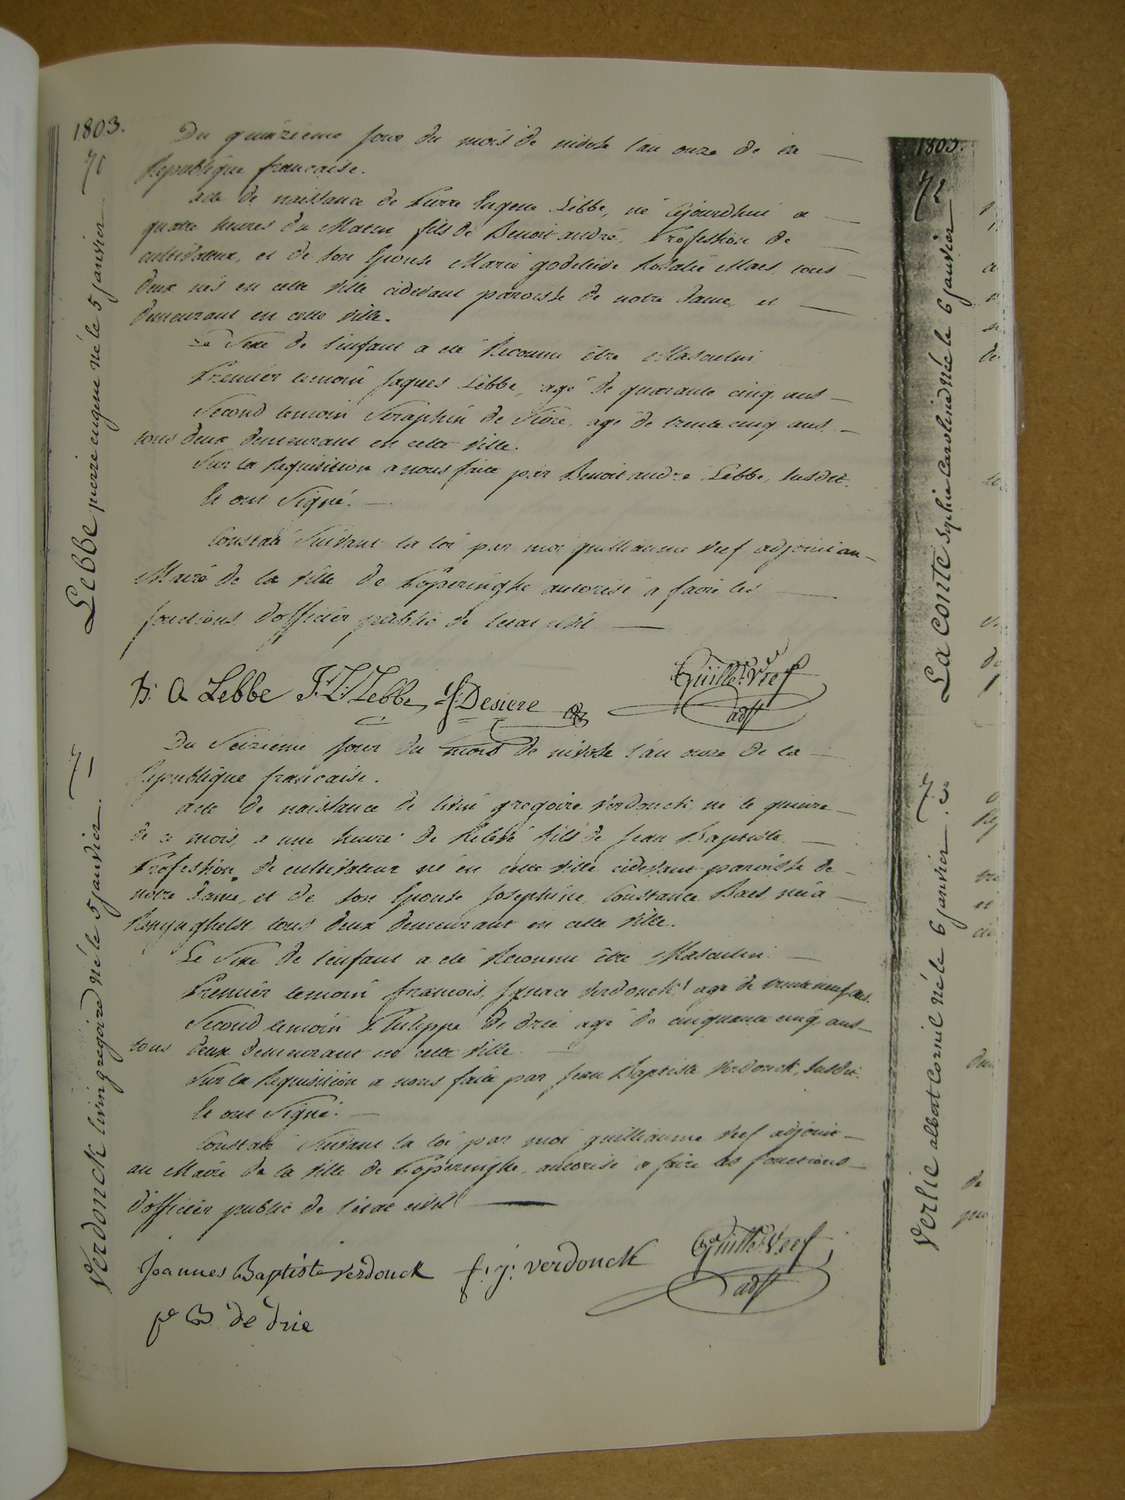 1803.
70
Lebbe pierre eugene né le 5 janvier
Du quinzieme jour du mois de nivose l'an onze de la
Republique francaise.
acte de naissance de Pierre Eugene Lebbe, né aujourdhui a
quatre heures du Matin fils de Benoit andré, Profession de
cultivateur, et de son Epouse Marie godelieve Rosalie Maes, tous
deux nés en cette ville cidevant paroisse de notre Dame, et
demeurant en cette ville.
Le Sexe de l'enfant a eté Reconnu être Masculin
Premier temoin Jaques Lebbe, agé de quarante cinq ans
Second temoin Seraphin de Siere, agé de trente cinq ans
tous deux demeurant en cette ville.
Sur la Requisition a nous faite par Benoit andré Lebbe, Susdit.
Et ont Signé.
Constaté Suivant la loi par moi guilliaume Vref adjoint au
Maire de la ville de Poperinghe autorisé a faire les
fonctions d'officier public de l'etat civil
B: A Lebbe J: L: Lebbe Desiere
Guille: Vref
adjt
71
Verdonck livin gregoire né le 5 janvier.
Du Seizieme jour du mois de nivose l'an onze de la
Republique francaise.
acte de naissance de livin gregoire Verdonck né le quinze
de ce mois, a une heure de Relevé fils de Jean Baptiste
Profession de cultivateur né en cette ville cidevant paroisse de
notre Dame, et de son Epouse Josephine Constance Baes née a
Renynghelst tous deux demeurant en cette ville.
Le Sexe de l'enfant a eté Reconnu être Masculin.
Premier temoin francois Ignace Verdonck agé de trente neuf ans.
Second temoin Philippe De Drie agé de cinquante cinq ans
tous deux demeurant en cette ville
Sur la Requisition a nous faite par Jean Baptiste Verdonck, Susdit.
Et ont Signé.
Constaté Suivant la loi par moi guilliaume Vref adjoint
au Maire de la ville de Poperinghe, autorisé a faire les fonctions
d'officier public de l'etat civil
Joannes Baptiste Verdonck f: j: verdonck
Guille: Vref
adjt
de drie
1803.
72
La conte Sophie Caroline née le 6 janvier
73
Verlie albert Cornil né le 6 janvier.